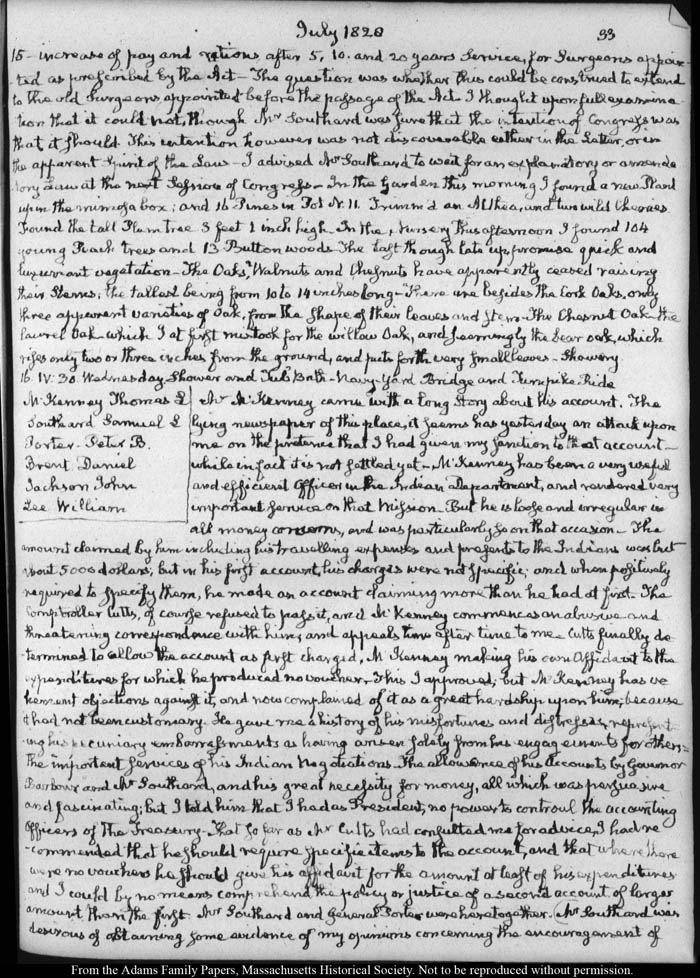 July 1828 33
15- increase of pay and rations after 5, 10. and 20 years Service, for Surgeons appoin-
-ted as prescribed by the Act- The question was whether this could be construed to extend
to the old Surgeons appointed before the passage of the Act- I thought upon full examina-
tion that it could not, though Mr Southard was sure that the intention of Congress was
that it should. This intention however was not discoverable either in the Letter, or in
the apparent Spirit of the Law- I advised Mr Southard to wait for an explanatory or amenda
tory Law at the next Session of Congress- In the Garden this morning I found a new Plant
upon the mimosa box; and 16 Pines in Pot N. 11. Trimm'd an Althea, and two wild Cherries
Found the tall Plum tree 3 feet 1 inch high- In the Nursery this afternoon I found 104
young Peach trees and 13 Button woods- The last though late up, promise quick and
luxuriant vegetation- The Oaks, Walnuts and Chesnuts have apparently ceased raising
their Stems; the tallest being from 10 to 14 inches long- There are besides the Cork Oaks, only
three apparent varieties of Oak, from the Shape of their leaves and stem- The Chesnut Oak- the
laurel Oak- which I at first mistook for the willow Oak, and seemingly the bear oak, which
rises only two or three inches from the ground, and puts forth very small leaves- Showery
16. IV:30. Wednesday. Shower and Tub Bath- Navy-Yard Bridge and Turnpike Ride
McKenney Thomas L
Southard Samuel L
Porter- Peter B.
Brent Daniel
Jackson John
Lee William
Mr McKenney came with a long story about his account. The
lying newspaper of this place, it seems has yesterday an attack upon
me on the pretence that I had given my sanction to that account-
while in fact it is not settled yet- McKenney has been a very useful
and efficient Officer in the Indian Department, and rendered very
important service on that Mission- But he is loose and irregular in
all money concerns, and was particularly so on that occasion- The
amount claimed by him including his travelling expenses and presents to the Indians was but
about 5000 dollars; but in his first account, his charges were not specific; and when positively
required to specify them, he made an account claiming more than he had at first. The
Comptroller Cutts, of course refused to pass it, and McKenney commences an abusive and
threatening correspondence with him; and appeals time after time to me- Cutts finally de
termined to allow the account as first charged, McKenney making his own Affidavit to the
expenditures for which he produced no voucher- This I approved; but McKenney has ve
hement objections against it, and now complained of it as a great hardship upon him; because
it had not been customary. He gave me a history of his misfortunes and distresses, represent
ing his pecuniary embarrassments as having arisen solely from his engagements for others-
The important services of his Indian Negotiations- The allowance of his Accounts by Governor
Barbour and Mr Southard, and his great necessity for money, all which was persuasive
and fascinating; but I told him that I had as President, no power to controul the accounting
Officers of the Treasury- That so far as Mr Cutts had consulted me for advice, I had re
-commended that he should require specific items to the account, and that where there
were no vouchers he should give his affidavit for the amount at least of his expenditures
and I could by no means comprehend the policy or justice of a second account of larger
amount than the first. Mr Southard and General Porter were here together. Mr Southard was
desirous of obtaining some evidence of my opinions concerning the encouragement of
From the Adams Family Papers, Massachusetts Historical Society. Not to be reproduced without permission.